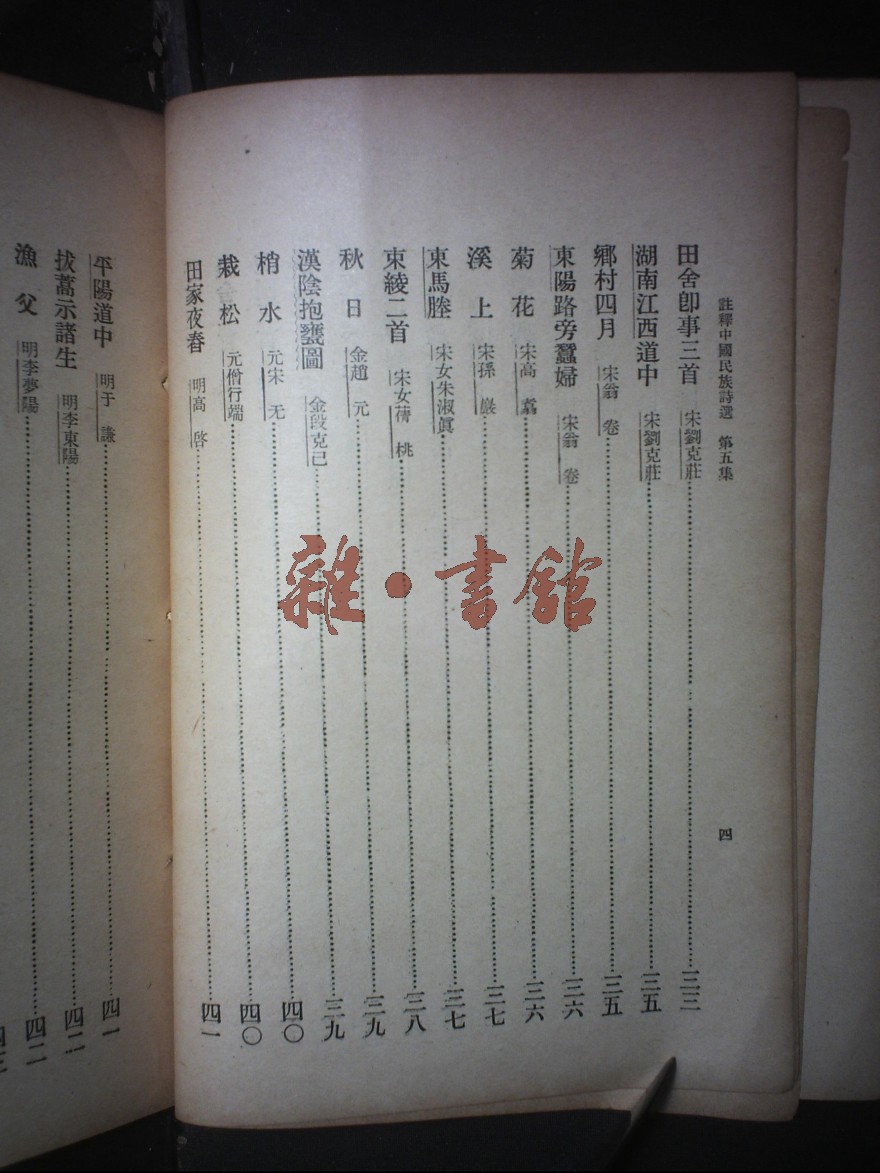 註釋中國民族詩選 第五集 四
田舍卽事三首 宋劉克莊 三三
湖南江西道中 宋劉克莊 三五
鄉村四月 宋翁卷 三五
東陽路旁蠶婦 宋翁卷 三六
菊花 宋高翥 三六
溪上 宋孫巖 三七
東馬塍 宋女朱淑眞 三七
束綾二首 宋女蒨桃 三八
秋日 金趙元 三九
漢陰抱甕圖 金段克己 三九
梢水 元宋无 四〇
栽松 元僧行端 四〇
田家夜舂 明高啓 四一
平陽道中 明于謙 四一
拔蒿示諸生 明李東陽 四二
漁父 明李夢陽 四二
雜·書館